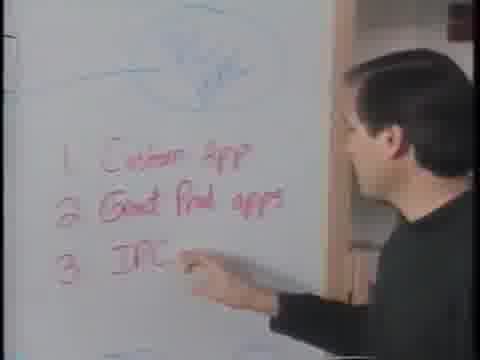 1 Custom App
2 Great Prod apps
3 IPC